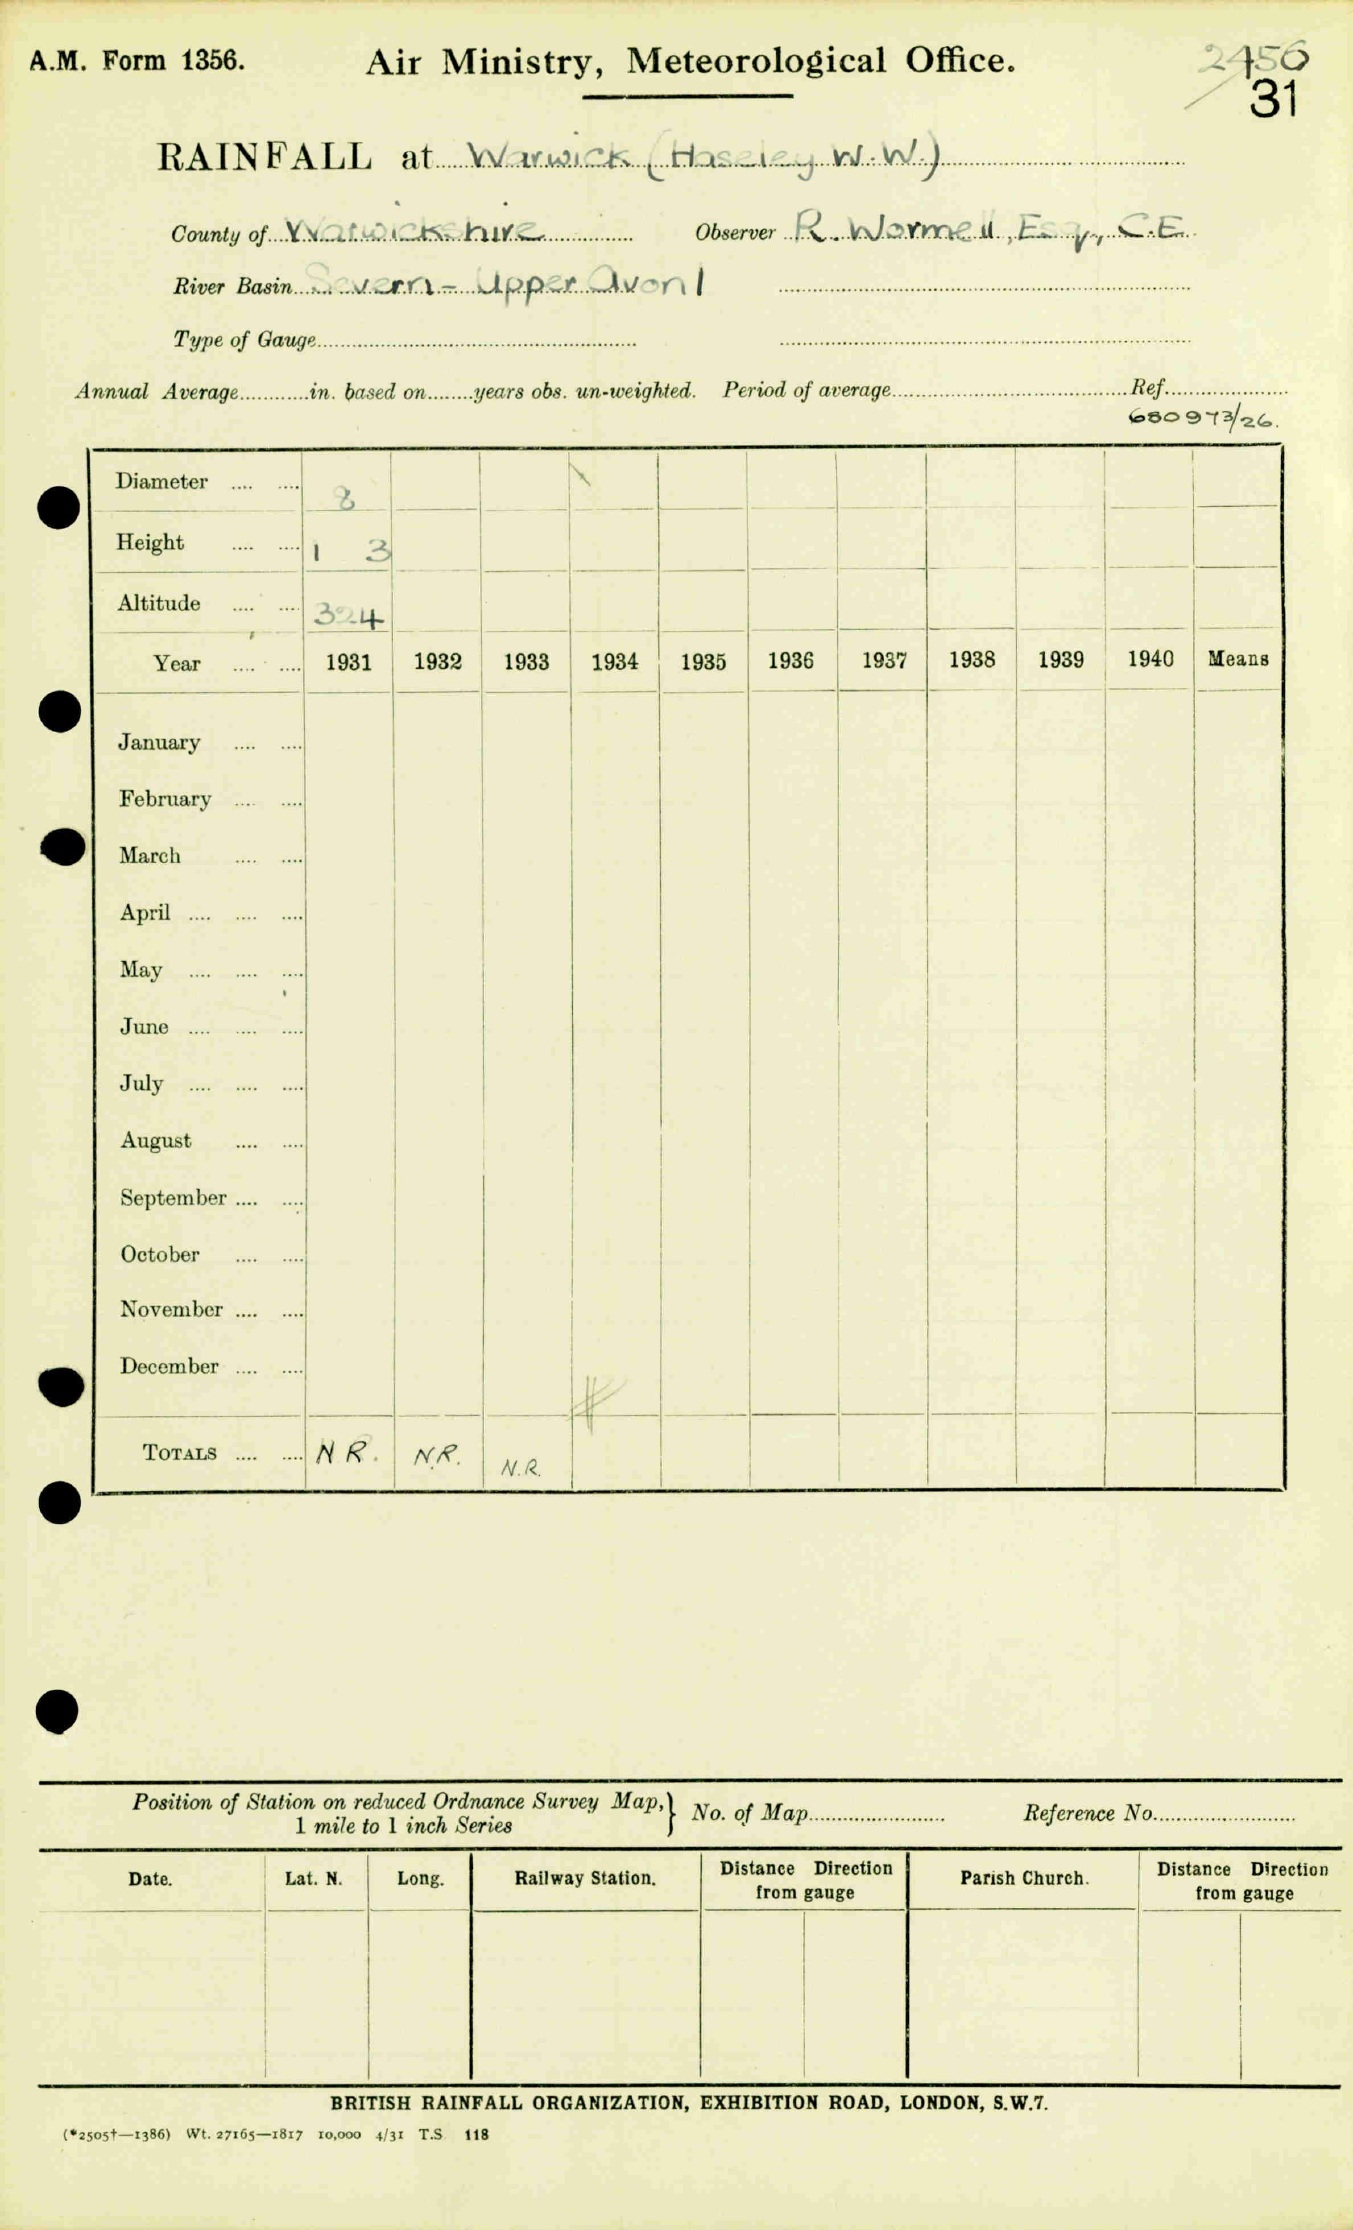 A.M. Form 1356. Air Ministry, Meteorological Office. 2456
31
RAINFALL at Warwick (Haseley W.W.)
County of Warwickshire Observer R. Wormell, Esq., C.E.
River Basin Severn - Upper Avon 1
Type of Gauge
Annual Average............in. based on........years obs. un-weighted. Period of average Ref.
680973/26.
Diameter .... .... 8
Height .... .... 1 3
Altitude .... .... 324
Year .... .... 1931 1932 1933 1934 1935 1936 1937 1938 1939 1940 Means
January .... ....
February .... ....
March .... ....
April .... .... ....
May .... .... ....
June .... .... ....
July .... .... ....
August .... ....
September .... ....
October .... ....
November .... ....
December .... ....
TOTALS .... .... N R. N.R. N.R.
Position of Station on reduced Ordnance Survey Map,} No. of Map Reference No.
1 mile to 1 inch Series
Date. Lat. N. Long. Railway Station. Distance Direction from gauge Parish Church. Distance Direction from gauge
BRITISH RAINFALL ORGANIZATION, EXHIBITION ROAD, LONDON, S.W.7.
(*2505†—1386) Wt. 27165—1817 10,000 4/31 T.S 118